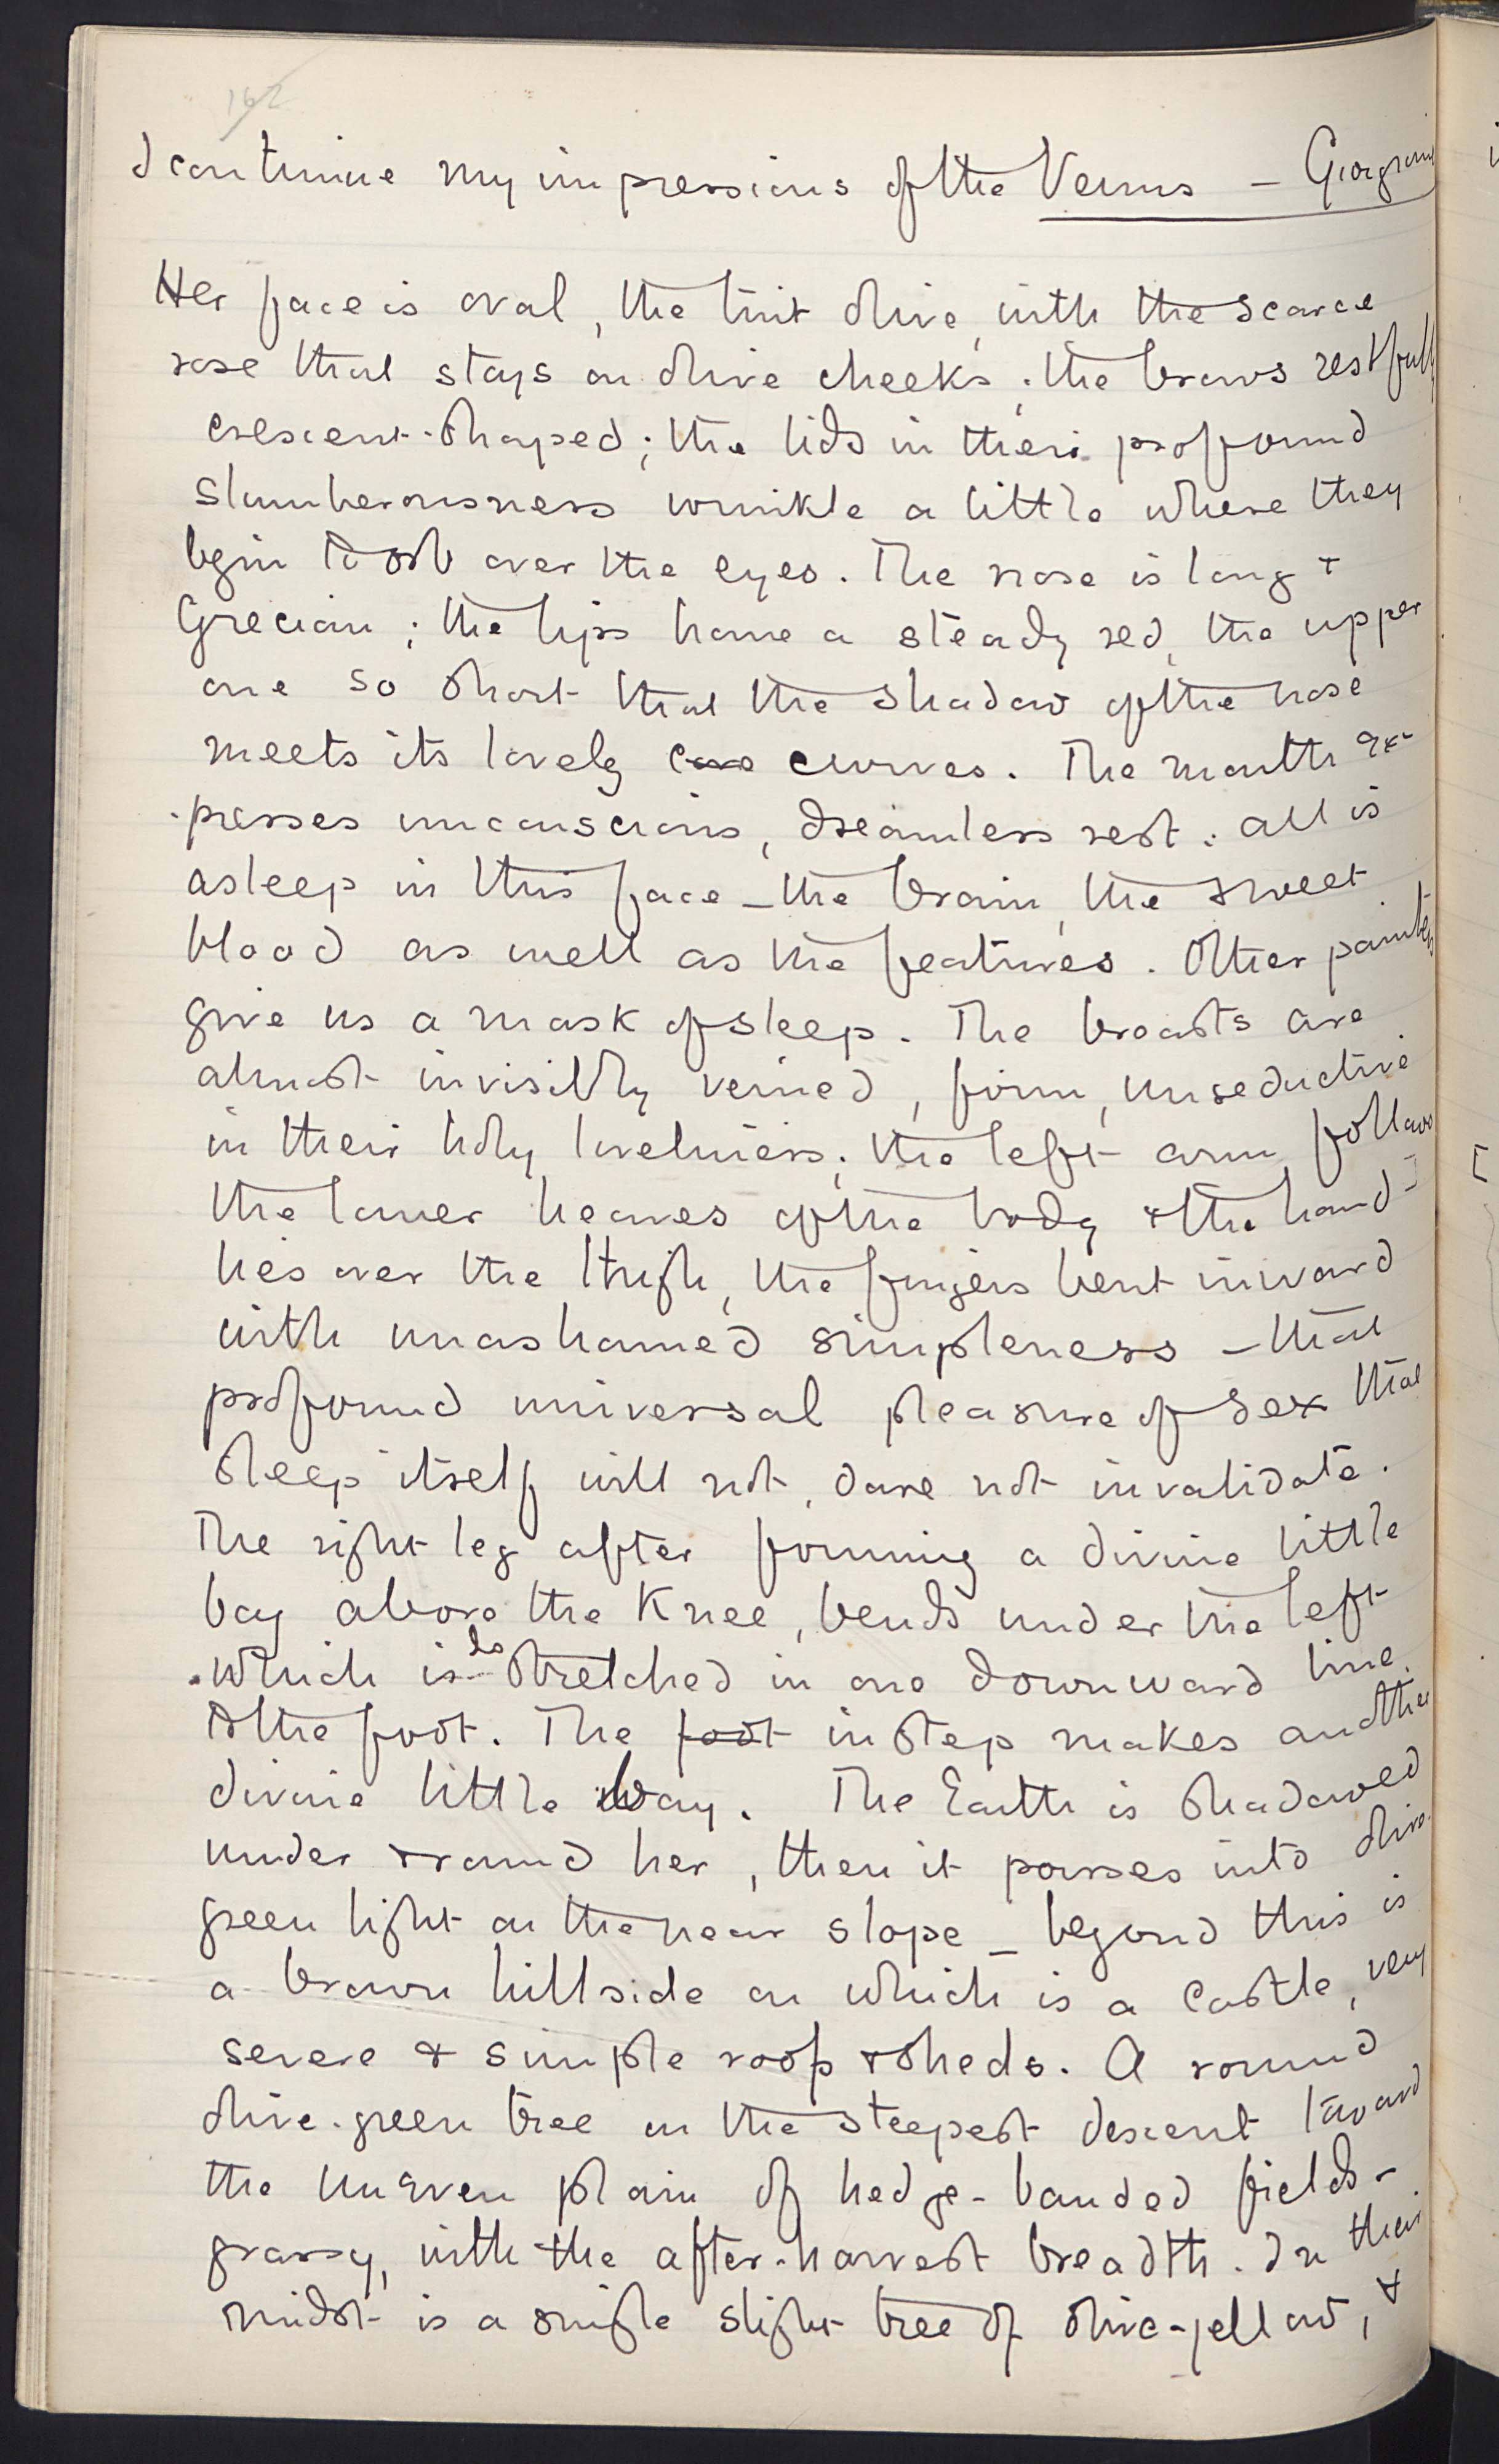 162
I continue my impressions of the Venus – Giorgione
Her face is oval, the tint olive, with the scarce
rose that stays on olive cheeks; the brows restfully
crescent-shaped; the lids in their profound
slumberousness wrinkle a little where they
begin to orb over the eyes. The nose is long &
Grecian; the lips have a steady red, the upper
one so short that the shadow of the nose
meets its lovely curves. The mouth ex-
-presses unconscious, dreamless rest: all is
asleep in this face – the brain, the sweet
blood as well as the features. Other painters
give us a mask of sleep. The breasts are
almost invisibly veined, firm, unseductive
in their holy loveliness; the left arm follows
the lower heaves of the body & the hand
lies over the thigh, the fingers bent inward
with unashamed simpleness – that
profound universal pleasure of sex that
sleep itself will not, dare not invalidate.
The right leg after forming a divine little
bay above the Knee, bends under the left
which is stretched in one downward line
to the foot. The foot instep makes another
divine little bay. The Earth is shadowed
under & round her, then it passes into olive
green light on the near slope – beyond this is
a brown hillside on which is a Castle, very
severe & simple roof & sheds. A round
olive-green tree on the steepest descent toward
the uneven plain of hedge-banded fields –
grassy, with the after-harvest breadth. In their
midst is a single slight tree of olive-yellow, &